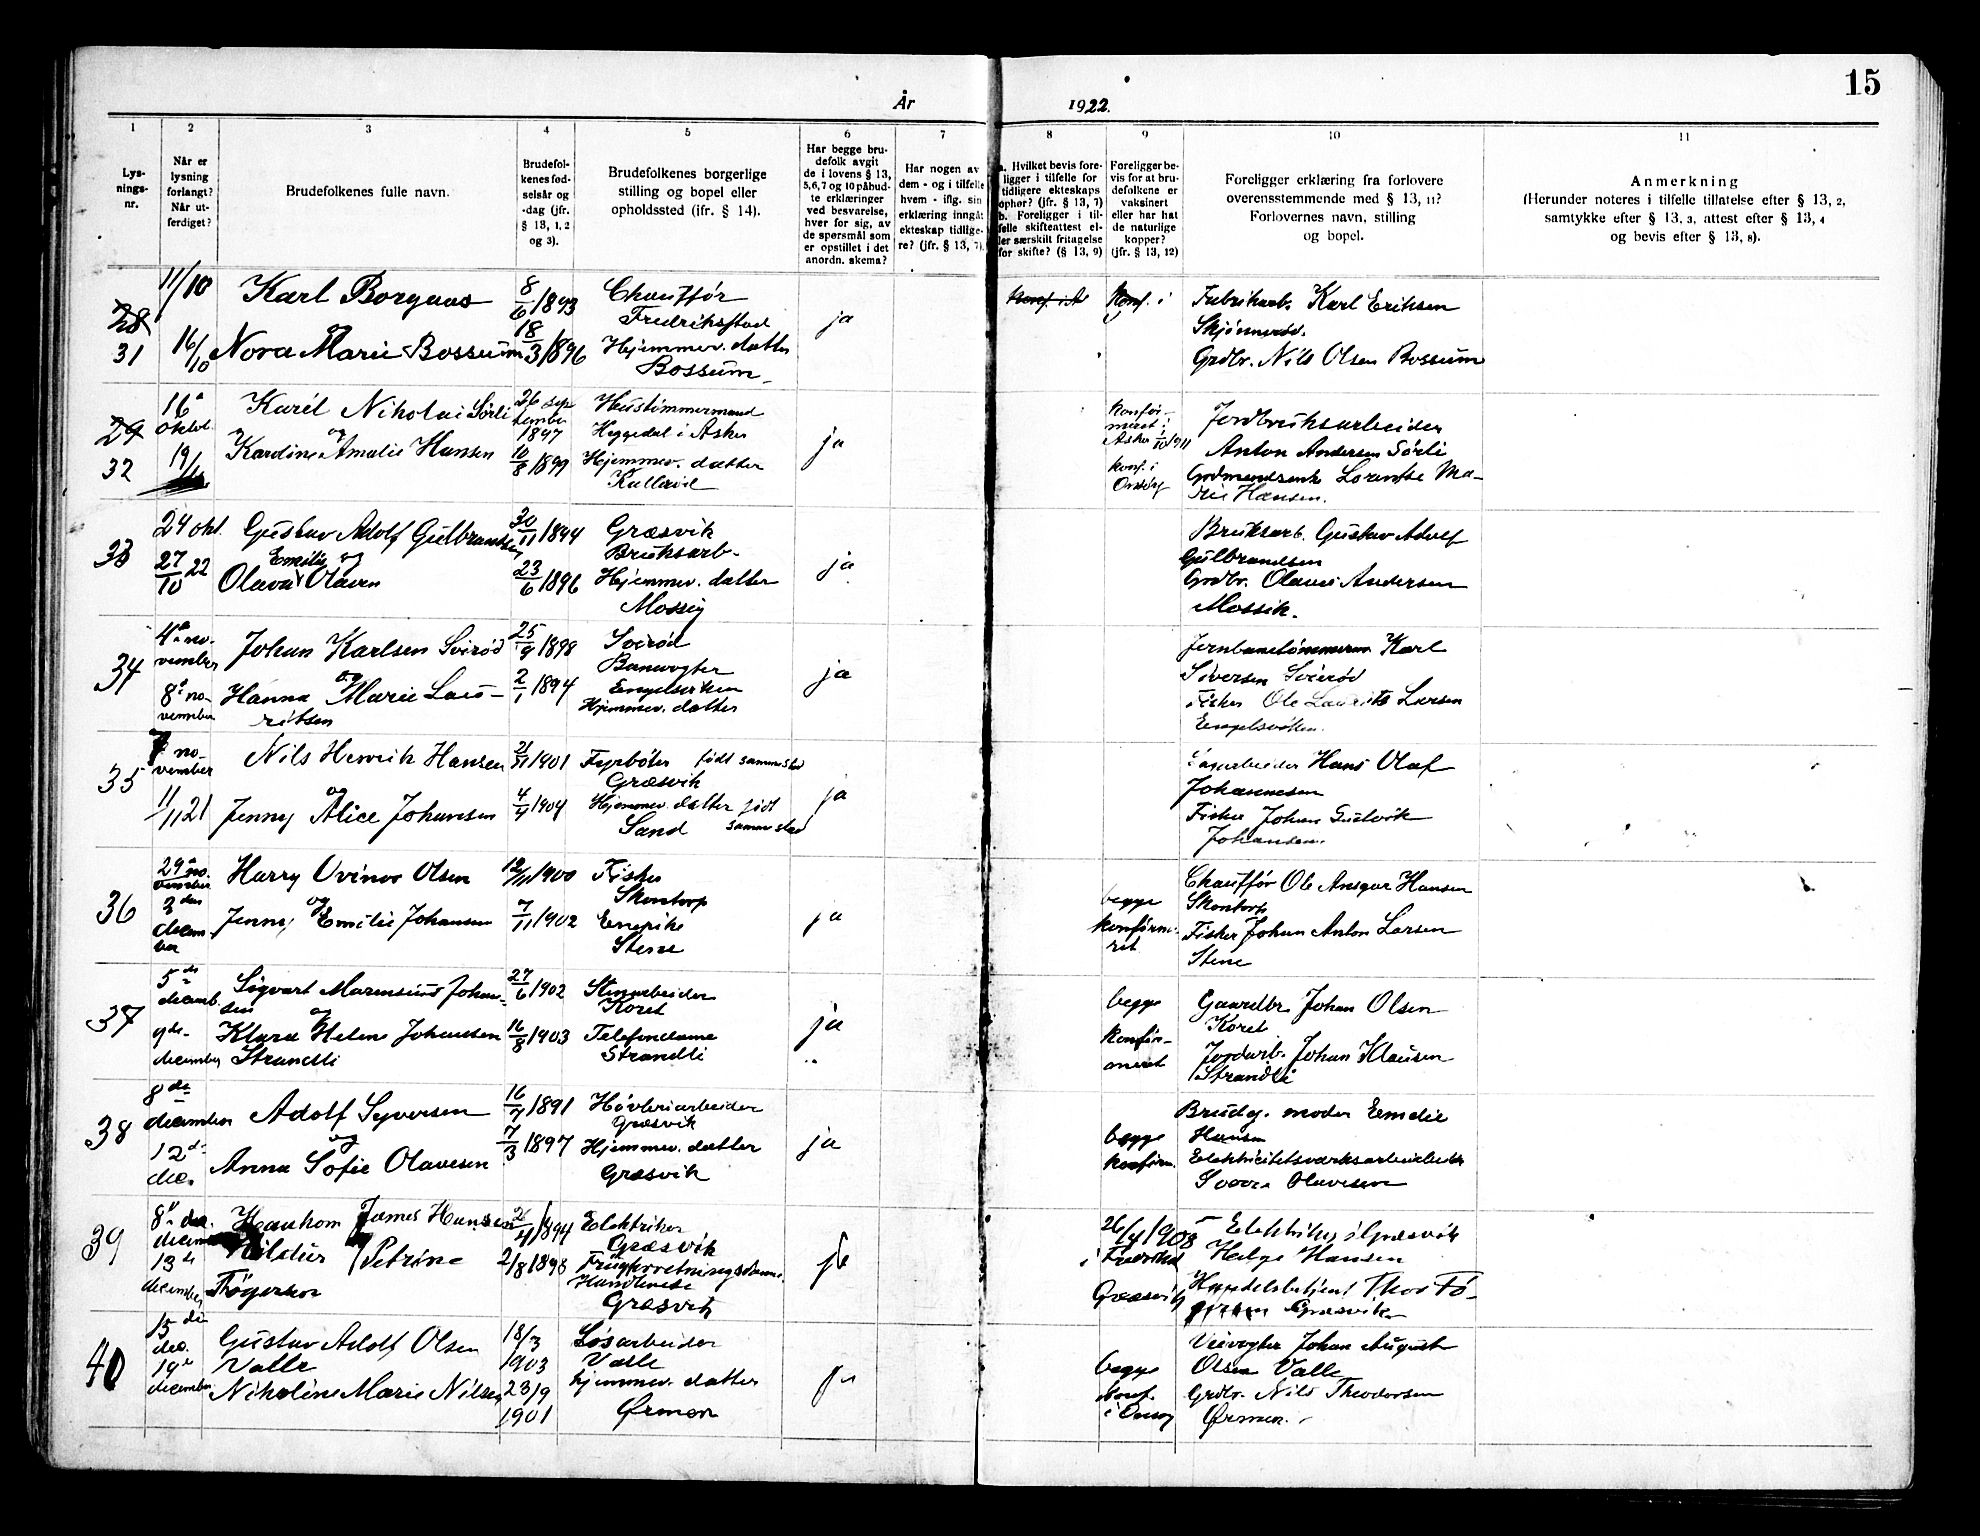 15
År 1922.
1 2 3 4 5 6 7 8 9 10 11
Lys-
nings-
nr.
Når er
lysning
forlangt?
Når ut-
ferdiget?
Brudefolkenes fulle navn.
Brudefol-
kenes fød-
selsår og
-dag (jfr.
§ 13, 1, 2
og 3).
Brudefolkenes borgerlige
stilling og bopel eller
opholdssted (jfr. § 14).
Har begge bru-
defolk avgit
de i lovens § 13,
5, 6, 7 og 10 påbud-
te erklæringer
ved besvarelse,
hver for sig, av
de spørsmål som
er opstillet i det
anordn. skema?
Har nogen av
dem - og i tilfelle
hvem - iflg. sin
erklæring inngåt
ekteskap tidlige-
re? (jfr. § 13, 7).
a. Hvilket bevis fore-
ligger i tilfelle for
tidligere ekteskaps
ophør? (jfr. § 13, 7)
b. Foreligger i til-
felle skifteattest el-
ler særskilt fritagelse
for skifte? (§ 13, 9)
Foreligger be-
vis for at bru-
defolkene er
vaksinert
eller har hat
de naturlige
kopper?
(jfr. § 13, 12)
Foreligger erklæring fra forlovere
overensstemmende med § 13, 11?
Forlovernes navn, stilling
og bopel.
Anmerkning
(Herunder noteres i tilfelle tillatelse efter § 13, 2,
samtykke efter § 13, 3, attest efter § 13, 4
og bevis efter § 13, 8).
28
31
11/10
16/10
Karl Borgaas
og
Nora Marie Bossum
8/6 1893
18/3 1896
Chauffør
Fredrikstad
Hjemmev. datter
Bossum
ja
Konf. i
Konf. i
Fabrikarb. Karl Eriksen
Grdbr. Nils Olsen Bossum
29
32
16de
oktob.
19/10
Karél Nikolai Sørli
og
Kardine Amalie Hansen
26 sep
tember
1897
10/8 1899
Hustømmermand
Heggedal i Asker
Hjemmev. datter
Kallerød
ja
konfir-
meret i
Asker 1/10 1911
konf. i
Onsøy
Jordbruksarbeider
Anton Andersen Sørli
Grdmandsenk Lorentse Ma-
rie Hansen.
33
24 okt.
27/10 22
Gustav Adolf Gulbrandsen
Emilie og
Olava Olsen
30/11 1894
23/6 1896
Græsvik
Bruksarb.
Hjemmev. datter
Mossig
ja
Bruksarb. Gustav Adolf
Gulbrandsen
Grdbr. Olaves Andersen
Mossik.
34
4de no-
vember
8de no-
vember
Johan Karlsen Svirød
og
Hanna Marie Lau-
ritsen
25/9 1898
2/1 1894
Svirød
Banevogter
Engelsviken
Hjemmev. datter
ja
Jernbanetømmerm Karl
Siversen Svirød
Fisker Ole Laurits Larsen
Engelsviken.
35
7 no-
vember
11/11 21
Nils Henrik Hansen
og
Jenny Alice Johansen
21/11 1901
4/4 1904
Fyrbøter født sammested
Græsvik
Hjemmev. datter født
Sand sammested
ja
Hans Olaf
Johannesen
Fisker Johan
Johansen.
36
29de no.
vember
2den
decem-
ber
Harry Ovinor Olsen
og
Jenny Emilie Johansen
12/11 1900
7/11 1902
Fisker
Skontorp
Enepike
Stene
ja
begge
konfirme-
ret
Chauffør Ole Ansgar Hansen
Skontorp
Fisker Johan Anton Larsen
Stene
37
5de
decemb.
9de
december
Sigvart Marensius Johan-
sen
og
Klara Helene Johansen
Strandli
27/6 1902
16/8 1903
Stenarbeider
Koret
Telefondame
Strandli
ja
begge
konfir-
meret
Gaardbr. Johan Olsen
Koret
Jordarb. Johan Klausen
Strandli
38
8de
december
12de
dec.
Adolf Syversen
og
Anna Sofie Olavesen
16/7 1891
7/3 1897
Høvleriarbeider
Græsvik
Hjemmev. datter
Græsvik
ja
begge
konfirm.
Brudg. moder Emelie
Hansen
Elektricitetsverksarbeider
Olavesen
39
8de dec.
december
13de
december
James Hansen
Petrine
2/8 1898
Elektriker
Græsvik
Græsvik
ja
26/4 1908
i Fredrikstad
Græsvik
Elektriker i Græsvik
Helge Hansen
Handelsbetjent Thor Fø-
Græsvik
40
15de
dec.
19de
december
Gustav Adolf Olsen
Valle
Nikoline Marie Nilsen
18/3
1903
23/9
1901
Løsarbeider
Valle
hjemmev. datter
Ørmen
ja
begge
konf.
i Onsøy
Veivogter Johan August
Olsen Valle
Grdbr. Nils Theodorsen
Ørmen.